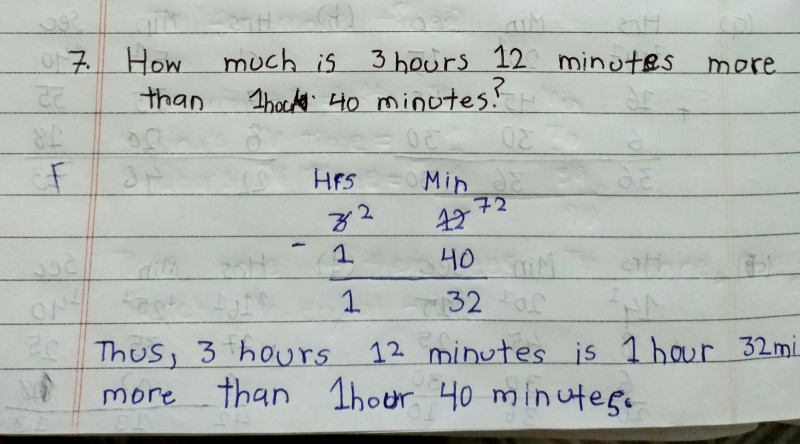 7. How much is 3 hours 12 minutes more
than 1hour 40 minutes?
Hrs Min
3 2 12 72
- 1 40
1 32
Thus, 3 hours 12 minutes is 1 hour 32mi
more than 1hour 40 minutes.